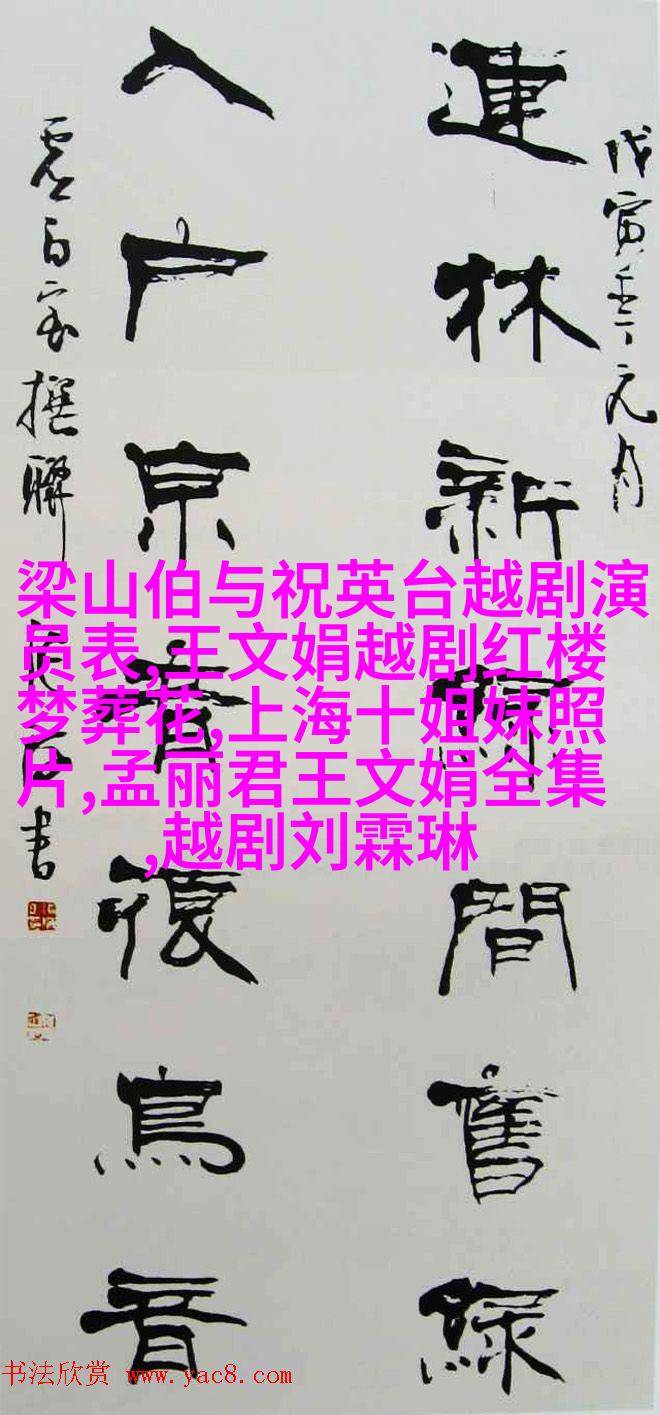 戊寅年元月
連林新間舊綠
入户京音鳥音
撰聯
書
梁山伯与祝英台越剧演
员表,王文娟越剧红楼
梦葬花,上海十姐妹照
片,孟丽君王文娟全集
,越剧刘霖琳
书法欣赏 www.yac8.com